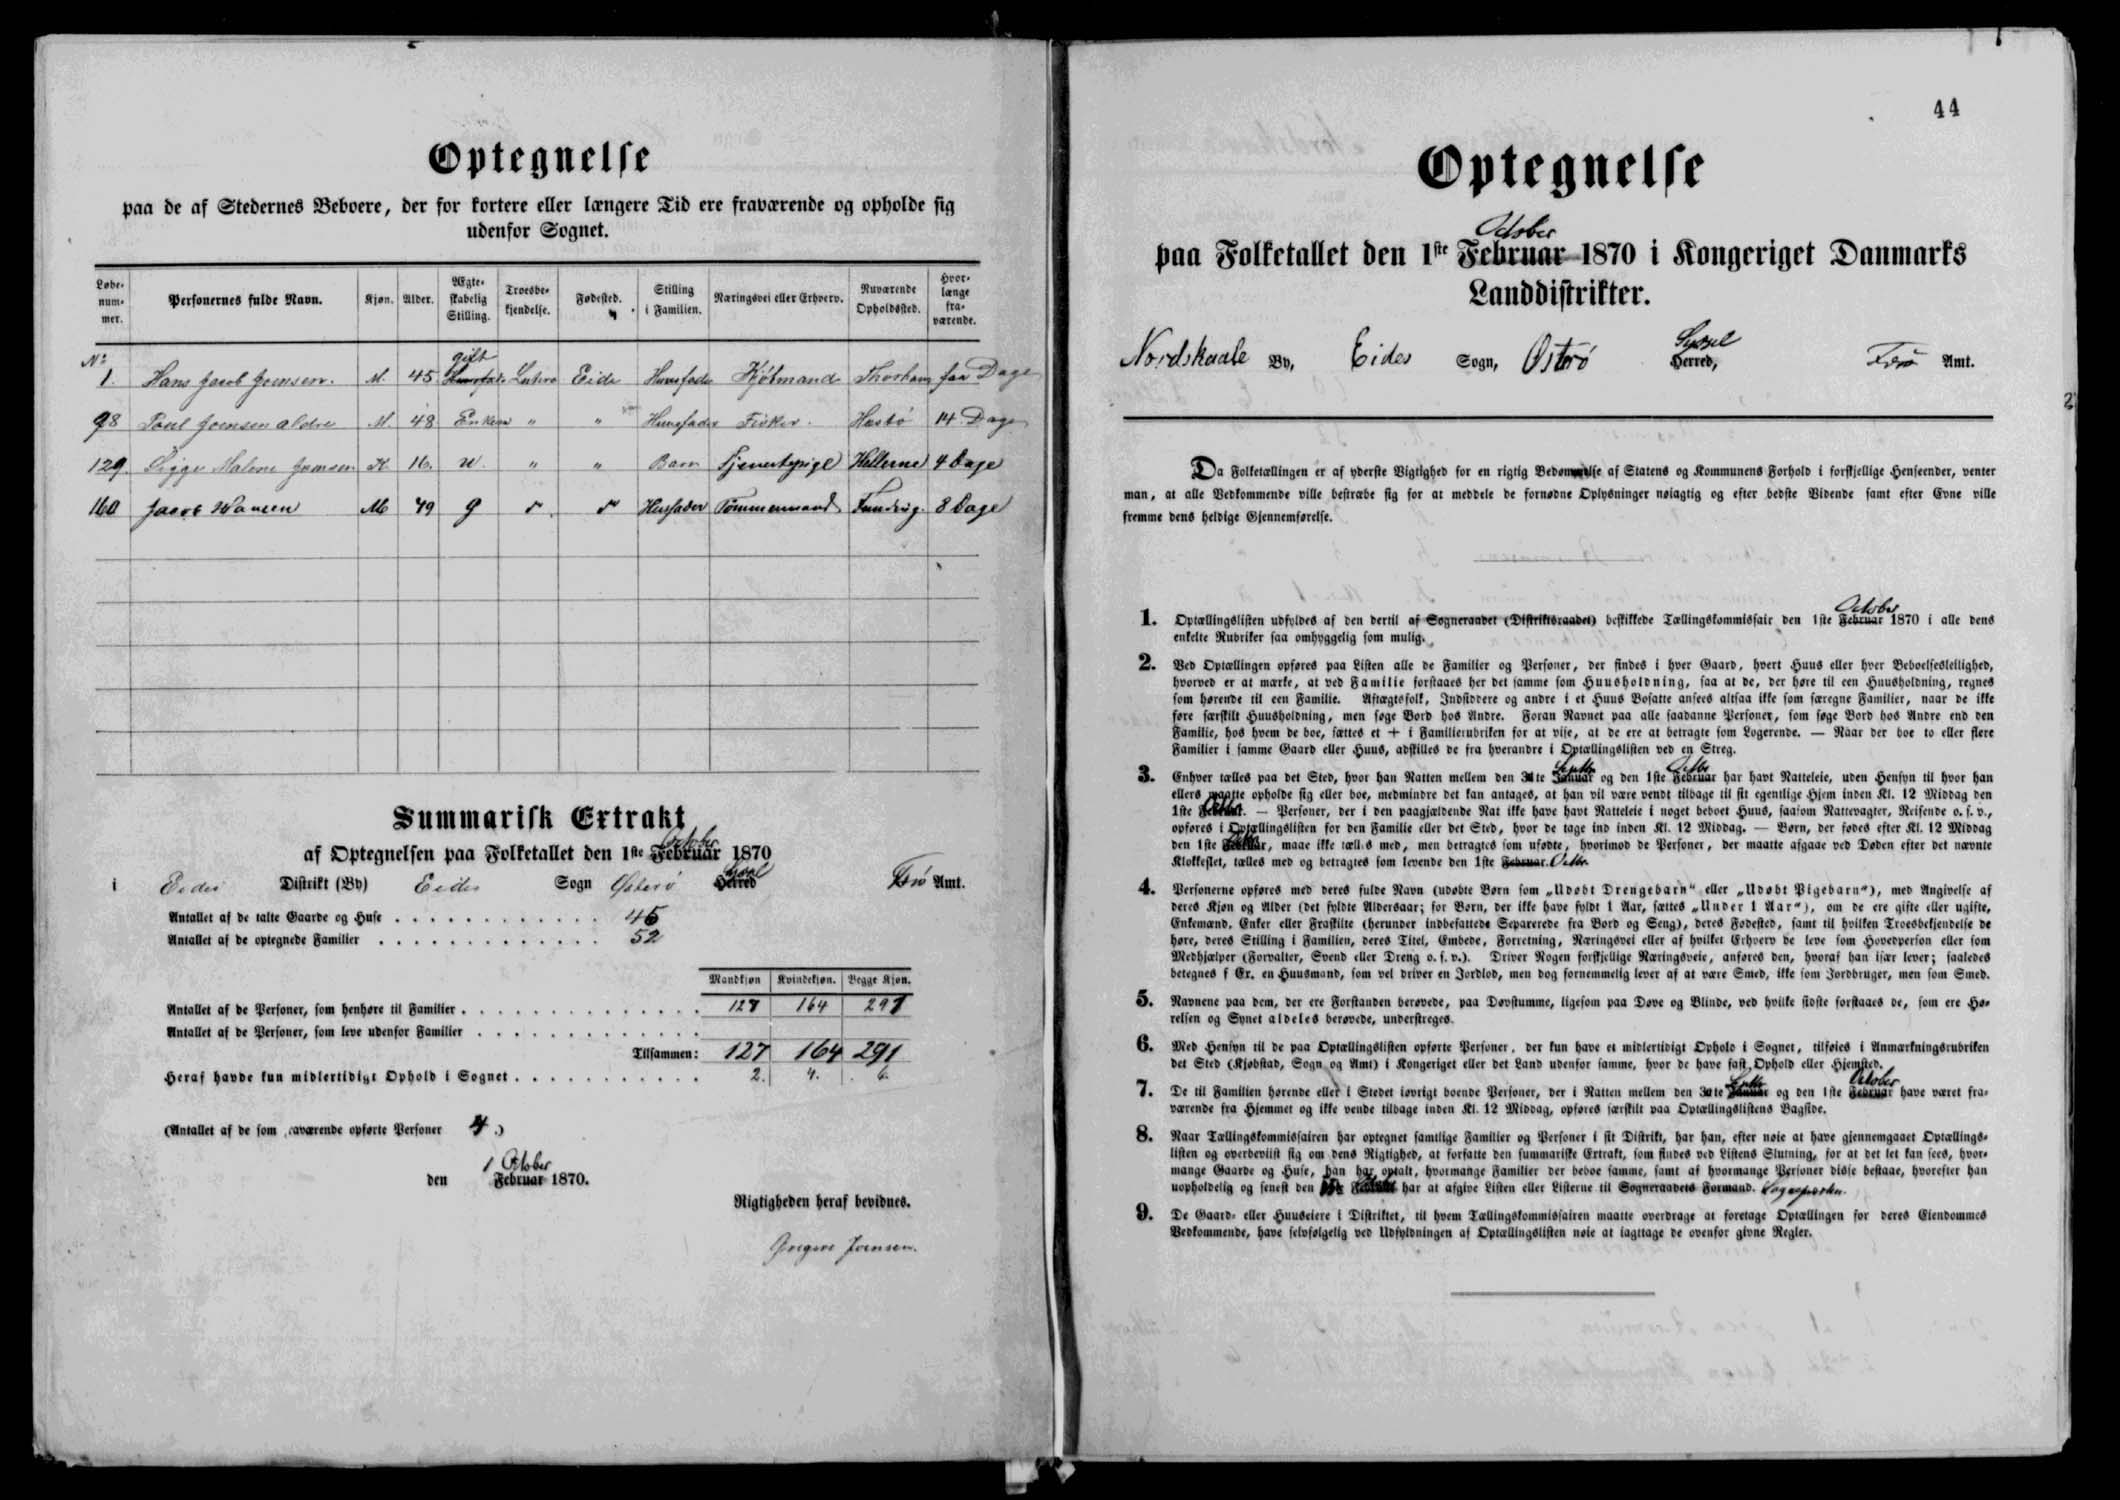 Optegnelse
paa de af Stedernes Beboere, der for kortere eller længere Tid ere fraværende og opholde sig
udenfor Sognet.
Løbe-nummer. Personernes fulde Navn. Kjøn. Alder. Ægteskabelig Stilling. Troesbekjendelse. Fødested. Stilling i Familien. Næringsvei eller Erhverv. Nuværende Opholdssted. Hvorlænge fraværende.
No 1. Hans Jacob Joensen. M. 45 gift Luthrs Eide Huusfader Kjøbmand Thorshavn faa Dage
98 Poul Joensen ældre M. 48 Enkem " " Huusfader Fisker. 14 Dage
129. Sigge Malene Joensen K. 16. u. " " Barn Tjenestepige Hellerne 4 Dage
160 Jacob Hansen M 49 g Husfader Tømmermand 8 Dage
Summarisk Extrakt
October
af Optegnelsen paa Folketallet den 1ste Februar 1870
Syssel
i Eides Distrikt (By) Eides Sogn Østerø Herred Færø Amt.
Antallet af de talte Gaarde og Huse 45
Antallet af de optegnede Familier 52
Mandkjøn Kvindekjøn. Begge Kjøn.
Antallet af de Personer, som henhøre til Familier 127 164 291
Antallet af de Personer, som leve udenfor Familier
Tilsammen: 127 164 291
Heraf havde kun midlertidigt Ophold i Sognet 2. 4. 6.
(Antallet af de som fraværende opførte Personer 4.)
1 October
den Februar 1870.
Rigtigheden heraf bevidnes.
Joensen.
44
Optegnelse
October
paa Folketallet den 1ste Februar 1870 i Kongeriget Danmarks
Landdistrikter.
Syssel
Nordskaale By, Eides Sogn, Østerø Herred, Færø Amt.
Da Folketællingen er af yderste Vigtighed for en rigtig Bedømmelse af Statens og Kommunens Forhold i forskjellige Henseender, venter
man, at alle Vedkommende ville bestræbe sig for at meddele de fornødne Oplysninger nøiagtig og efter bedste Vidende samt efter Evne ville
fremme dens heldige Gjennemførelse.
October
1. Optællingslisten udfyldes af den dertil af Sogneraadet (Distriktsraadet) beskikkede Tællingskommissair den 1ste Februar 1870 i alle dens
enkelte Rubriker saa omhyggelig som mulig.
2. Ved Optællingen opføres paa Listen alle de Familier og Personer, der findes i hver Gaard, hvert Huus eller hver Beboelsesleilighed,
hvorved er at mærke, at ved Familie forstaaes her det samme som Huusholdning, saa at de, der høre til een Huusholdning, regnes
som hørende til een Familie. Aftægtsfolk, Indsiddere og andre i et Huus Bosatte ansees altsaa ikke som særegne Familier, naar de ikke
føre særskilt Huusholdning, men søge Bord hos Andre. Foran Navnet paa alle saadanne Personer, som søge Bord hos Andre end den
Familie, hos hvem de boe, sættes et + i Familierubriken for at vise, at de ere at betragte som Logerende. — Naar der boe to eller flere
Familier i samme Gaard eller Huus, adskilles de fra hverandre i Optællingslisten ved en Streg.
Septbr Octbr
3. Enhver tælles paa det Sted, hvor han Natten mellem den 31te Januar og den 1ste Februar har havt Natteleie, uden Hensyn til hvor han
ellers maatte opholde sig eller boe, medmindre det kan antages, at han vil være vendt tilbage til sit egentlige Hjem inden Kl. 12 Middag den
1ste Octbr. — Personer, der i den paagjældende Nat ikke have havt Natteleie i noget beboet Huus, saasom Nattevagter, Reisende o. s. v.,
opføres i Optællingslisten for den Familie eller det Sted, hvor de tage ind inden Kl. 12 Middag. — Børn, der fødes efter Kl. 12 Middag
den 1ste Februar, maae ikke tælles med, men betragtes som ufødte, hvorimod de Personer, der maatte afgaae ved Døden efter det nævnte
Klokkeslet, tælles med og betragtes som levende den 1ste Februar. Octbr.
4. Personerne opføres med deres fulde Navn (udøbte Børn som „Udøbt Drengebarn“ eller „Udøbt Pigebarn“), med Angivelse af
deres Kjøn og Alder (det fyldte Aldersaar; for Børn, der ikke have fyldt 1 Aar, sættes „Under 1 Aar“), om de ere gifte eller ugifte,
Enkemænd, Enker eller Fraskilte (herunder indbefattede Separerede fra Bord og Seng), deres Fødested, samt til hvilken Troesbekjendelse de
høre, deres Stilling i Familien, deres Titel, Embede, Forretning, Næringsvei eller af hvilket Erhverv de leve som Hovedperson eller som
Medhjælper (Forvalter, Svend eller Dreng o. s. v.). Driver Nogen forskjellige Næringsveie, anføres den, hvoraf han især lever; saaledes
betegnes f Ex. en Huusmand, som vel driver en Jordlod, men dog fornemmelig lever af at være Smed, ikke som Jordbruger, men som Smed.
5. Navnene paa dem, der ere Forstanden berøvede, paa Døvstumme, ligesom paa Døve og Blinde, ved hvilke sidste forstaaes de, som ere Hørelsen og Synet aldeles berøvede, understreges.
6. Med Hensyn til de paa Optællingslisten opførte Personer, der kun have et midlertidigt Ophold i Sognet, tilføies i Anmærkningsrubriken
det Sted (Kjøbstad, Sogn og Amt) i Kongeriget eller det Land udenfor samme, hvor de have fast Ophold eller Hjemsted.
Septbr October
7. De til Familien hørende eller i Stedet iøvrigt boende Personer, der i Natten mellem den 30te Januar og den 1ste Februar have været fraværende fra Hjemmet og ikke vende tilbage inden Kl. 12 Middag, opføres særskilt paa Optællingslistens Bagside.
8. Naar Tællingskommissairen har optegnet samtlige Familier og Personer i sit Distrikt, har han, efter nøie at have gjennemgaaet Optællingslisten og overbeviist sig om dens Rigtighed, at forfatte den summariske Extrakt, som findes ved Listens Slutning, for at det let kan sees, hvormange Gaarde og Huse, han har optalt, hvormange Familier der beboe samme, samt af hvormange Personer disse bestaae, hvorefter han
uopholdelig og senest den har at afgive Listen eller Listerne til Sogneraadets Formand. Sognepræsten.
9. De Gaard- eller Huuseiere i Distriktet, til hvem Tællingskommissairen maatte overdrage at foretage Optællingen for deres Eiendommes
Vedkommende, have selvfølgelig ved Udfyldningen af Optællingslisten nøie at iagttage de ovenfor givne Regler.